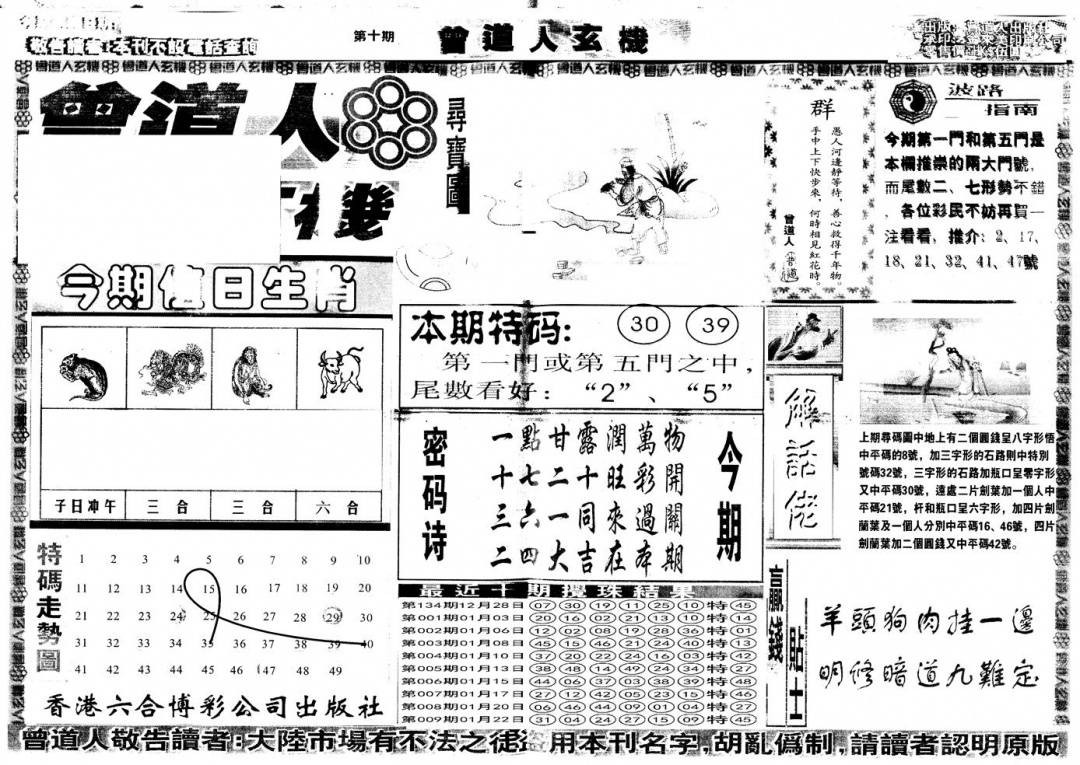 敬告讀者:本刊不設電話查詢
第十期
曾道人玄機
曾道人
尋寶圖
今期值日生肖
子日冲午 三合 三合 六合
特碼走勢圖
1 2 3 4 5 6 7 8 9 10
11 12 13 14 15 16 17 18 19 20
21 22 23 24 25 26 27 28 29 30
31 32 33 34 35 36 37 38 39 40
41 42 43 44 45 46 47 48 49
香港六合博彩公司出版社
本期特码: 30 39
第一門或第五門之中,
尾數看好: “2”、“5”
密码诗
一點甘露潤萬物
十七二十旺彩開
三六一同來過關
二四大吉在本期
今期
最近十期攪珠結果
第134期12月28日 07 30 19 11 25 10 特 45
第001期01月03日 20 16 02 21 13 10 特 14
第002期01月06日 12 02 08 19 28 36 特 01
第003期01月08日 45 15 46 21 24 40 特 13
第004期01月10日 37 20 22 24 16 03 特 42
第005期01月13日 38 48 14 49 24 34 特 27
第006期01月15日 44 06 37 03 38 39 特 48
第007期01月17日 27 12 42 05 23 15 特 46
第008期01月20日 06 46 44 09 01 04 特 27
第009期01月22日 31 04 24 27 15 09 特 45
群
愚人河邊靜等待,善心救得千年物。
手中上下快步來,何時相見紅花時。
曾道人
波路
指南
今期第一門和第五門是
本欄推崇的兩大門號,
而尾數二、七形勢不錯
,各位彩民不妨再買一
注看看,推介:2、17、
18、21、32、41、47號
解話佬
上期尋碼圖中地上有二個圓錢呈八字形悟
中平碼的8號,加三字形的石路則中特別
號碼32號,三字形的石路加瓶口呈零字形
又中平碼30號,遠處二片劍葉加一個人中
平碼21號,杆和瓶口呈六字形,加四片劍
蘭葉及一個人分別中平碼16、46號,四片
劍蘭葉加二個圓錢又中平碼42號。
贏錢
貼士
羊頭狗肉挂一邊
明修暗道九難定
曾道人敬告讀者:大陸市場有不法之徒盜用本刊名字,胡亂僞制,請讀者認明原版